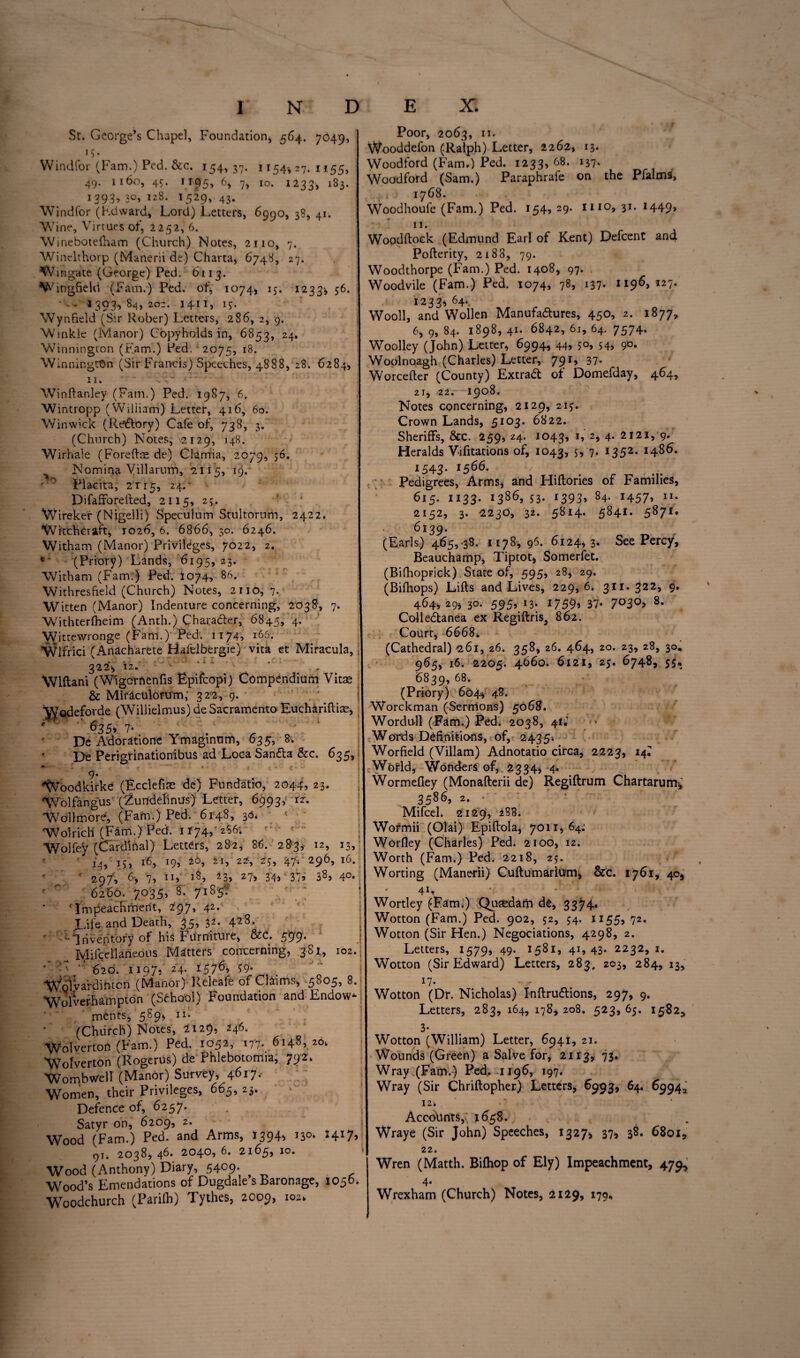 I N D E X.
St. George's Chapel, Foundation, 564. 7049,
15.
Windſor (Fam.) Ped. &c. 154, 37. 1154, 27. 1155,
49. 1160, 45. 1195, 6, 7, 10. 1233, 183.
1393, 30, 128. 1529, 43.
Windſor (Edward, Lord) Letters, 6990, 38, 41.
Wine, Virtues of, 2252, 6.
Winebotelham (Church) Notes, 2110, 7.
Winelthorp (Manerii de) Charta, 6748, 27.
Wingate (George) Ped. 6113.
Wingfield (Fam.) Ped. of, 1074, 15. 1233, 56.
1393, 84, 202. 1411, 15.
Wynfield (Sir Rober) Letters, 286, 2, 9.
Winkle (Manor) Copyholds in, 6853, 24.
Winnington (Fam.) Ped. 2075, 18.
Winnington (Sir Francis) Speeches, 4888, 28. 6284,
11.
Winſtanley (Fam.) Ped. 1987, 6.
Wintropp (William) Letter, 416, 60.
Winwick (Rectory) Caſe of, 738, 3.
(Church) Notes, 2129, 148.
Wirhale (Foreſtæ de) Clamia, 2079, 56.
Nomina Villarum, 2115, 19.
Placita, 2115, 24.
Difafforeſted, 2115, 25.
Wireker (Nigelli) Speculum Stultorum, 2422.
Witcheraft, 1026, 6. 6866, 30. 6246.
Witham (Manor) Privileges, 7022, 2.
(Priory) Lands, 6195, 23.
Witham (Fam.) Ped. 1074, 86.
Withresfield (Church) Notes, 2110, 7.
Witten (Manor) Indenture concerning, 2038, 7.
Withterſheim (Anth.) Character, 6845, 4.
Wittewronge (Fam.) Ped. 1174, 166.
Wlfrici (Anacharete Haſelbergie) vita et Miracula,
322, 12.
Wlſtani (Wigornenſis Epiſcopi) Compendium Vitæ
& Miraculorum, 322, 9.
Wodeforde (Willielmus) de Sacramento Euchariſtiæ,
635, 7.
De Adoratione Ymaginum, 635, 8.
De Perigrinationibus ad Loca Sancta &c. 635,
9.
Woodkirke (Eccleſiæ de) Fundatio, 2044, 23.
Wolfangus (Zundelinus) Letter, 6993, 12.
Wollmore, (Fam.) Ped. 6148, 36.
Wolrich (Fam.) Ped. 1174, 286.
Wolſey (Cardinal) Letters, 282, 86. 283, 12, 13,
14, 15, 16, 19, 20, 21, 22, 25, 47. 296, 16.
297, 6, 7, 11, 18, 23, 27, 34, 37, 38, 40.
6260. 7035, 8. 7185.
Impeachment, 297, 42.
Life and Death, 35, 32. 428.
Inventory of his Furniture, &c. 599.
Miſcellaneous Matters concerning, 381, 102.
620. 1197, 24. 1576, 59.
Wolvardinton (Manor) Releaſe of Claims, 5805, 8.
Wolverhampton (School) Foundation and Endow-
ments, 589, 11.
(Church) Notes, 2129, 246.
Wolverton (Fam.) Ped. 1052, 177. 6148, 20.
Wolverton (Rogerus) de Phlebotomia, 792.
Wombwell (Manor) Survey, 4617.
Women, their Privileges, 665, 23.
Defence of, 6257.
Satyr on, 6209, 2.
Wood (Fam.) Ped. and Arms, 1394, 130. 1417,
91. 2038, 46. 2040, 6. 2165, 10.
Wood (Anthony) Diary, 5409.
Wood's Emendations of Dugdale's Baronage, 1056.
Woodchurch (Pariſh) Tythes, 2009, 102.
Poor, 2063, 11.
Wooddeſon (Ralph) Letter, 2262, 13.
Woodford (Fam.) Ped. 1233, 68. 137.
Woodford (Sam.) Paraphraſe on the Pſalms,
1768.
Woodhouſe (Fam.) Ped. 154, 29. 1110, 31. 1449,
11.
Woodſtock (Edmund Earl of Kent) Deſcent and
Poſterity, 2188, 79.
Woodthorpe (Fam.) Ped. 1408, 97.
Woodvile (Fam.) Ped. 1074, 78, 137. 1196, 127.
1233, 64.
Wooll, and Wollen Manufactures, 450, 2. 1877,
6, 9, 84. 1898, 41. 6842, 61, 64. 7574.
Woolley (John) Letter, 6994, 44, 50, 54, 90.
Woolnoagh (Charles) Letter, 791, 37.
Worceſter (County) Extract of Domeſday, 464,
21, 22. 1908.
Notes concerning, 2129, 215.
Crown Lands, 5103. 6822.
Sheriffs, &c. 259, 24. 1043, 1, 2, 4. 2121, 9.
Heralds Viſitations of, 1043, 5, 7. 1352. 1486.
1543. 1566.
Pedigrees, Arms, and Hiſtories of Families,
615. 1133. 1386, 53. 1393, 84. 1457, 11.
2152, 3. 2230, 32. 5814. 5841. 5871.
6139.
(Earls) 465, 38. 1178, 96. 6124, 3. See Percy,
Beauchamp, Tiptot, Somerſet.
(Biſhoprick) State of, 595, 28, 29.
(Biſhops) Liſts and Lives, 229, 6. 311. 322, 9.
464, 29, 30. 595, 13. 1759, 37. 7030, 8.
Collectanea ex Regiſtris, 862.
Court, 6668.
(Cathedral) 261, 26. 358, 26. 464, 20. 23, 28, 30.
965, 16. 2205. 4660. 6121, 25. 6748, 55.
6839, 68.
(Priory) 604, 48.
Worckman (Sermons) 5068.
Wordull (Fam.) Ped. 2038, 41.
Words Definitions, of, 2435.
Worfield (Villam) Adnotatio circa, 2223, 14.
World, Wonders of, 2334, 4.
Wormeſley (Monaſterii de) Regiſtrum Chartarum,
3586, 2.
Miſcel. 2129, 288.
Wormii (Olai) Epiſtola, 7011, 64.
Worſley (Charles) Ped. 2100, 12.
Worth (Fam.) Ped. 2218, 25.
Worting (Manerii) Cuſtumarium, &c. 1761, 40,
41.
Wortley (Fam.) Quædam de, 3374.
Wotton (Fam.) Ped. 902, 52, 54. 1155, 72.
Wotton (Sir Hen.) Negociations, 4298, 2.
Letters, 1579, 49. 1581, 41, 43. 2232, 1.
Wotton (Sir Edward) Letters, 283, 203, 284, 13,
17.
Wotton (Dr. Nicholas) Inſtructions, 297, 9.
Letters, 283, 164, 178, 208. 523, 65. 1582,
3.
Wotton (William) Letter, 6941, 21.
Wounds (Green) a Salve for, 2113, 73.
Wray (Fam.) Ped. 1196, 197.
Wray (Sir Chriſtopher) Letters, 6993, 64. 6994,
12.
Accounts, 1658.
Wraye (Sir John) Speeches, 1327, 37, 38. 6801,
22.
Wren (Matth. Biſhop of Ely) Impeachment, 479,
4.
Wrexham (Church) Notes, 2129, 179.